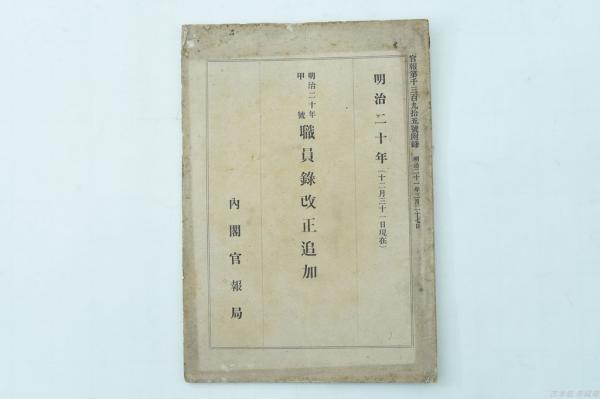 官報第千三百九拾五號附錄 明治二十一年二月二十七日
明治二十年(十二月三十一日現在)
明治二十年
甲號
職員錄改正追加
內閣官報局